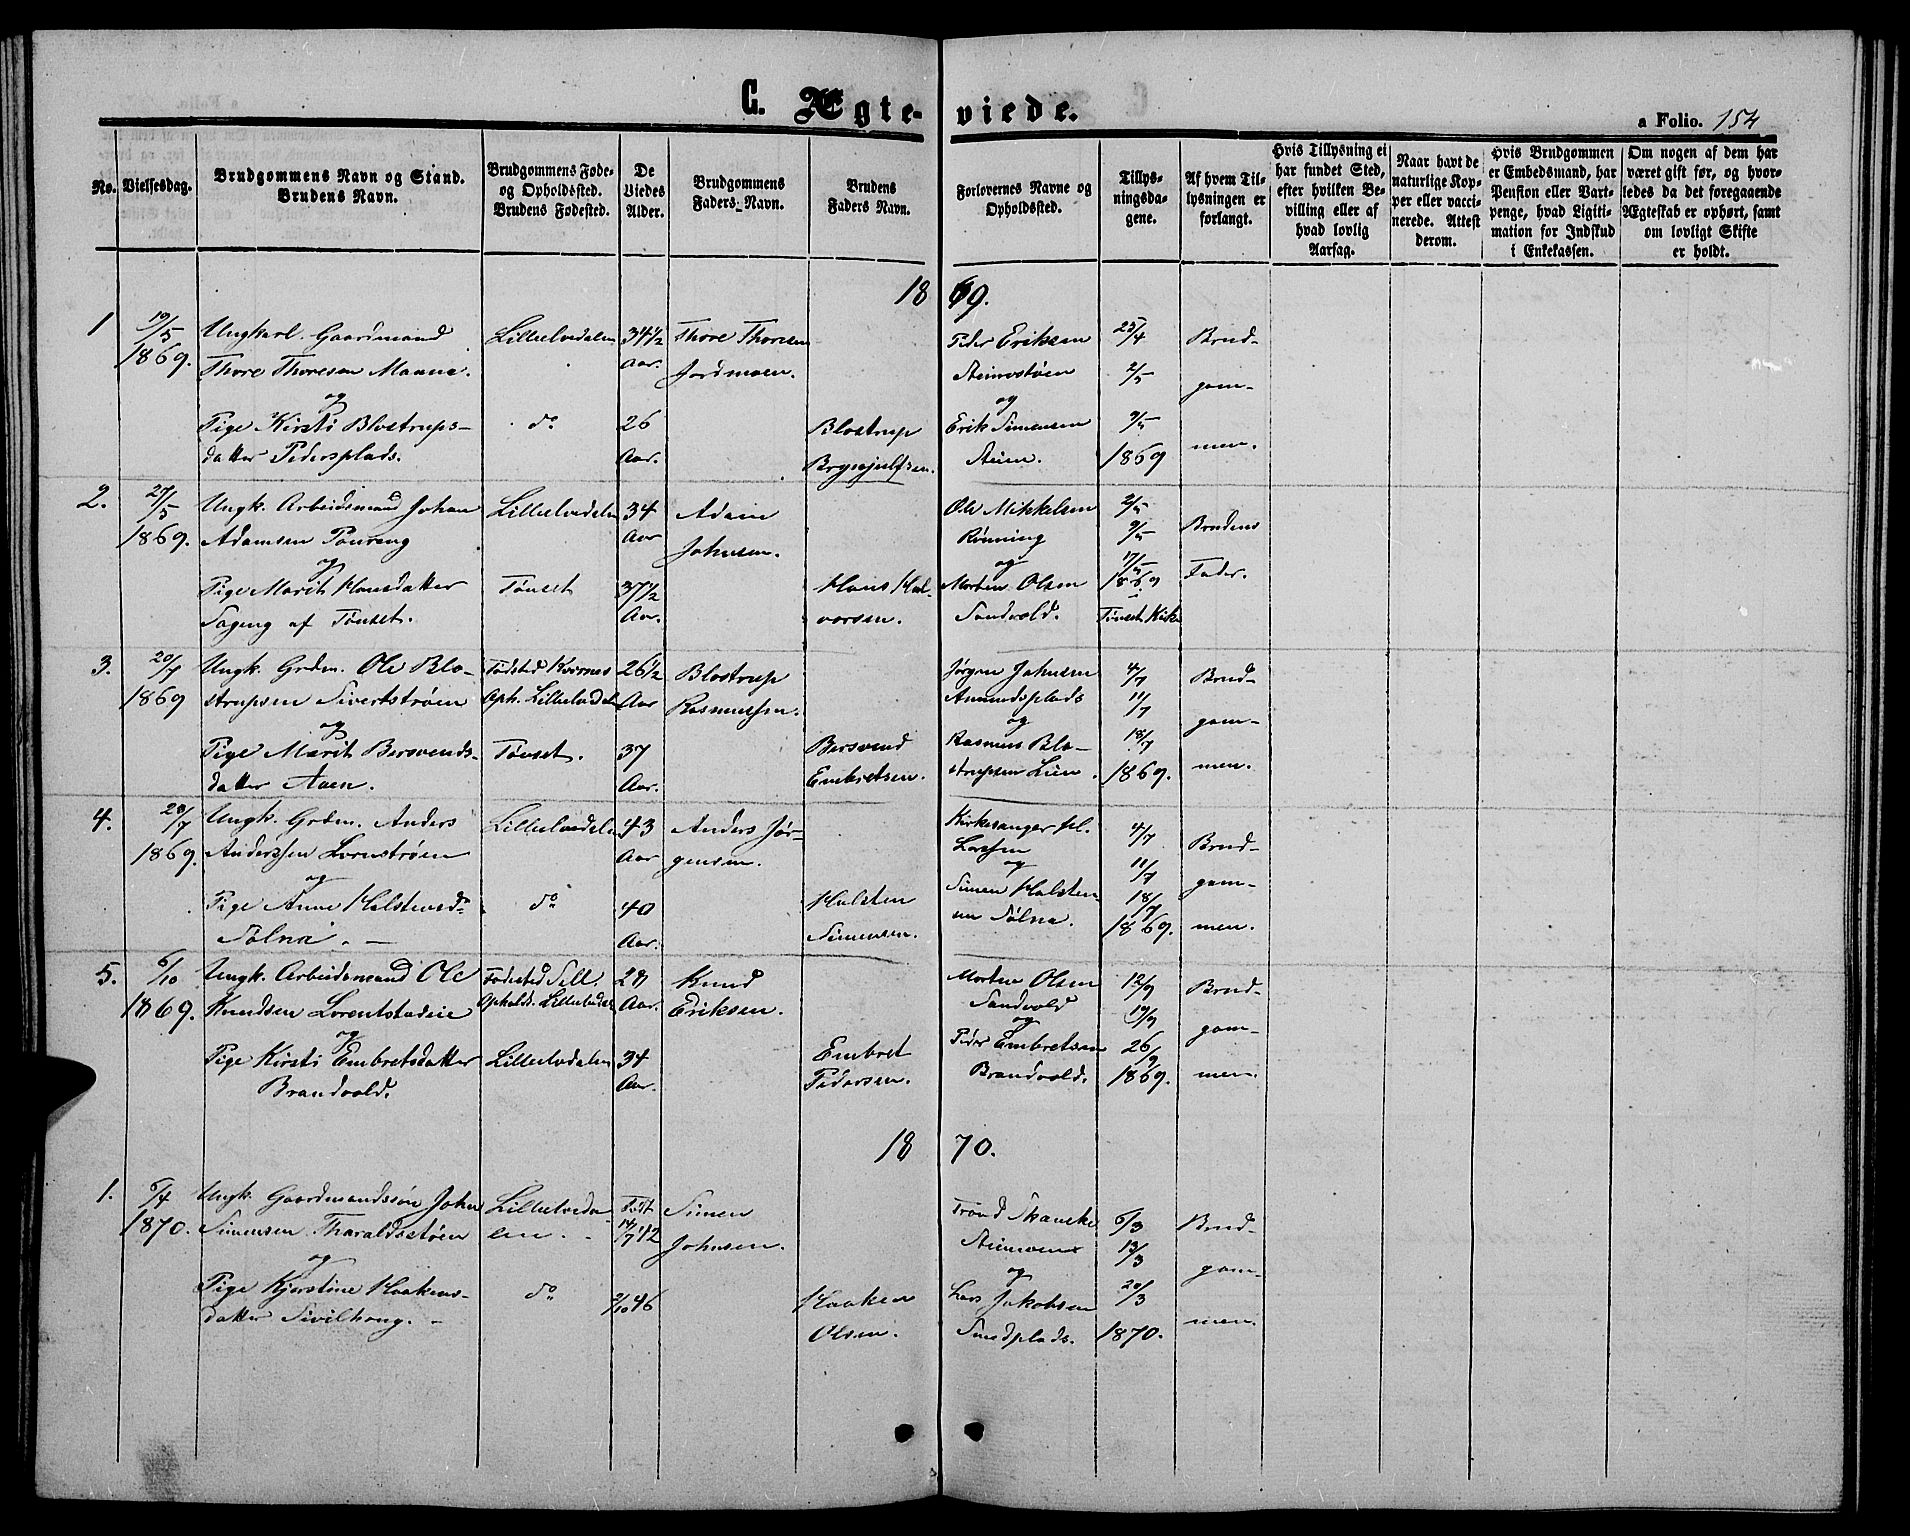 C. Ægte-
viede.
a Folio. 154
No.
Vielsesdag.
Brudgommens Navn og Stand.
Brudens Navn.
Brudgommens Føde-
og Opholdssted.
Brudens Fødested.
De
Viedes
Alder.
Brudgommens
Faders Navn.
Brudens
Faders Navn.
Forlovernes Navne og
Opholdssted.
Tillys-
ningsda-
gene.
Af hvem Til-
lysningen er
forlangt.
Hvis Tillysning ei
har fundet Sted,
efter hvilken Be-
villing eller af
hvad lovlig
Aarsag.
Naar havt de
naturlige Kop-
per eller vacci-
nerede. Attest
derom.
Hvis Brudgommen
er Embedsmand, har
Pension eller Vart-
penge, hvad Ligiti-
mation for Indskud
i Enkekassen.
Om nogen af dem har
været gift før, og hvor-
ledes da det foregaaende
Ægteskab er ophørt, samt
om lovligt Skifte
er holdt.
1869.
1
19/5
1869.
Ungkarl. Gaardmand
Thore Thoresen Maana.
og
Pige Kirsti Blostrups-
datter Pedersplads.
Lilleelvedalen
do
34 1/2
Aar.
26
Aar.
Thore Thoresen
Jordmoen.
Blostrup
Brynjulfsen.
Peder Eriksen
Steimostøen
og
Erik Simensen
Steien.
25/4
2/5
9/5
1869
Brud-
gom-
men.
2.
27/5
1869.
Ungk. Arbeidsmand Johan
Adamsen Poureng
og
Pige Marit Hansdatter
Sageng af Tönset.
Lilleelvedalen
Tönset
34
Aar
37 1/2
Aar.
Adam
Johnsen.
Hans Hal-
vorsen.
Ole Mikkelsen
Rönning
og
Morten Olsen
Sandvold.
2/5
9/5
17/5
1869
i
Tönset Kirke
Brudens
Fader.
3.
20/7
1869
Ungk. Grdm. Ole Blo-
strupsen Sivertstrøen
og
Pige Marit Bersvends-
datter Aaen.
Fødsted Kvernes
Oph. Lilleelvedalen
Tönset.
26 1/2
Aar
37
Aar.
Blostrup
Rasmussen.
Bersvend
Embretsen.
Jørgen Johnsen
Amundsplads
og
Rasmus Blo-
strupsen Lien.
4/7
11/7
18/7
1869.
Brud-
gom-
men.
4.
28/7
1869.
Ungk. Grdm. Anders
Anderssen Lornstrøen
og
Pige Anne Halstensd.
Sølna. —
Lilleelvedalen
do
43
Aar
40
Aar.
Anders Jør-
gensen.
Halsten
Simensen.
Kirkesanger
Larssen
og
Simen Halsten-
sen Sølna.
4/7
11/7
18/7
1869.
Brud-
gom-
men.
5.
6/10
1869.
Ungk. Arbeidsmand Ole
Knudsen Lorentstadeie
og
Pige Kirsti Embretsdatter
Brandvold.
Fødested Sell.
Opholdt. Lilleelvedalen
Lilleelvedalen
28
Aar.
34
Aar.
Knud
Eriksen.
Embret
Pedersen.
Morten Olsen
Sandvold
og
Peder Embretsen
Brandvold.
12/9
19/9
26/9
1869.
Brud-
gom-
men.
1870.
1.
6/4
1870.
Ungk. Gaardmandssøn John
Simensen Tharaldsstøen
og
Pige Kjerstine Haakens-
datter Sivilhaug. -
Lilleelveda-
len. -
do
Født
14/7 42
2/10 46
Simen
Johnsen.
Haaken
Olsen.
Trond Skancke
Steimoen
og
Lars Jakobsen
Smedplads.
6/3
13/3
20/3
1870.
Brud-
gom-
men.